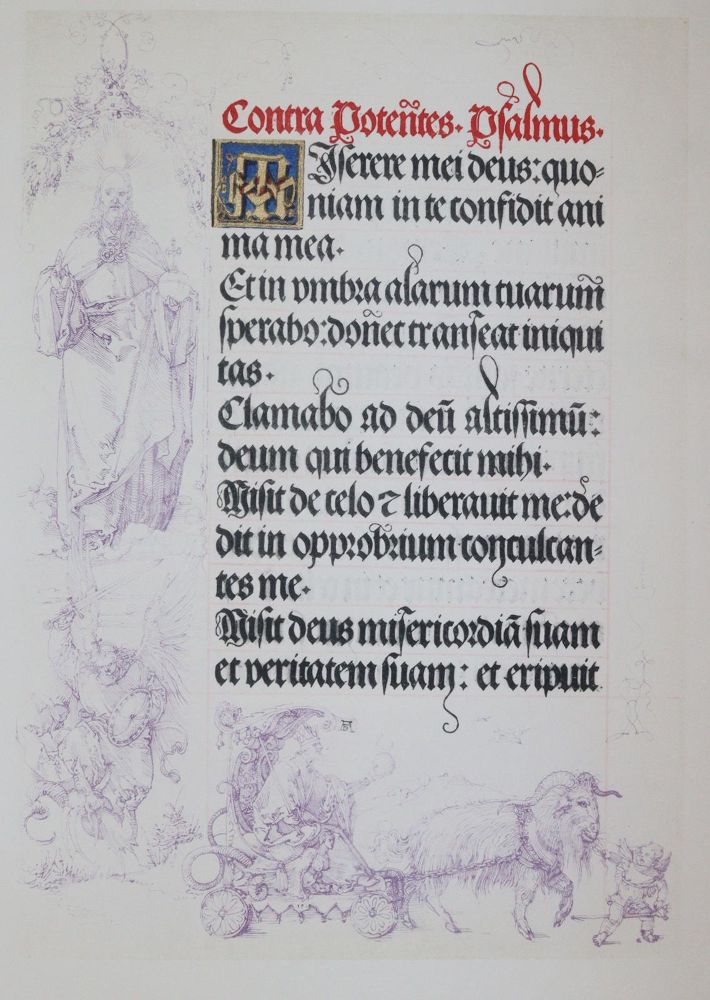 Contra Poteñtes. Psalmus.
MIserere mei deus: quo-
niam in te confidit ani
ma mea.
Et in vmbra alarum tuarum̃
sperabo: doñec transeat iniqui
tas.
Clamabo ad deũ altissimũ:
deum qui benefecit mihi.
Misit de celo ⁊ liberauit me: de
dit in opprobrium conculcan-
tes me.
Misit deus misericordiã suam
et veritatem suam: et eripuit